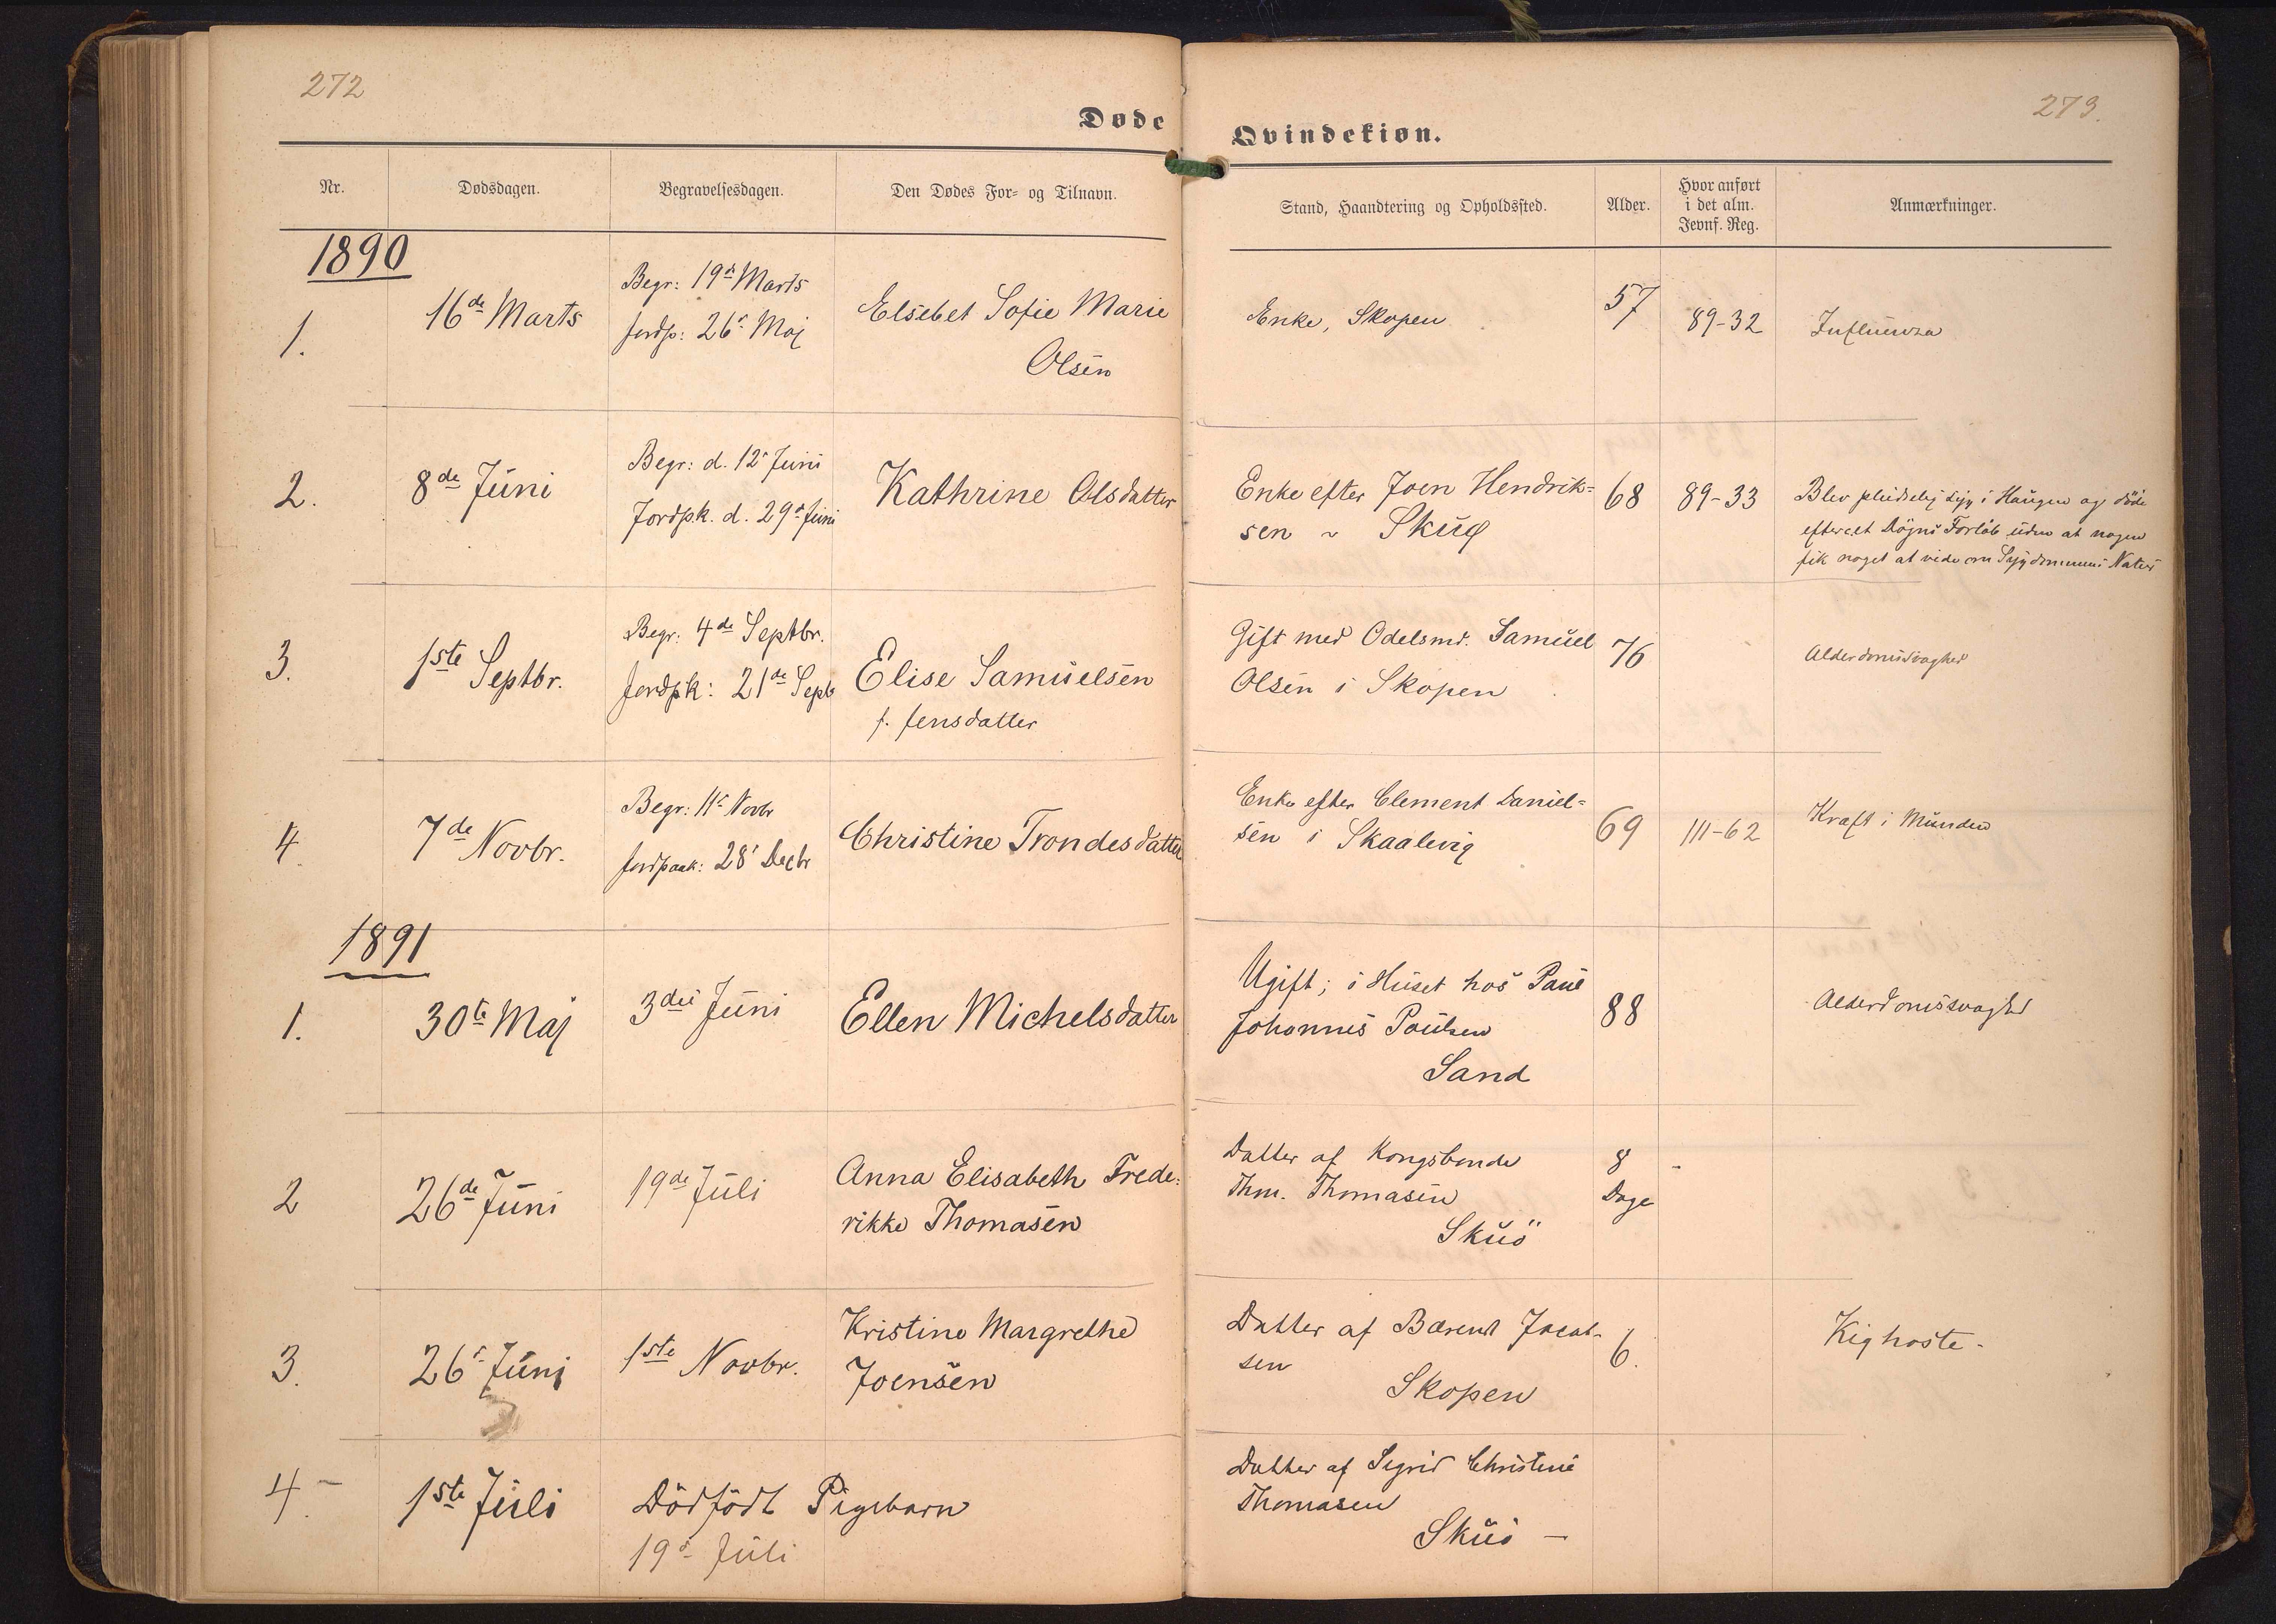 272
273.
Døde
Qvindekiøn.
Nr.
Dødsdagen.
Begravelsesdagen.
Den Dødes For- og Tilnavn.
Stand, Haandtering og Opholdssted.
Alder.
Hvor anført
i det alm.
Jevnf. Reg.
Anmærkninger.
1890
1.
16de Marts
Begr: 19de Marts
Jordp: 26de Maj
Elsebet Sofie Marie
Olsen
Enke, Skopen
57
89-32
Influenza
2.
8de Juni
Begr: d. 12te Juni
Jordpk. d. 29de Juni
Kathrine Olsdatter
Enke efter Joen Hendrik=
sen ~ Skuø
68
89-33
Blev pludselig syg i Haugen og döde
efter et Dögns Forløb uden at nogen
fik noget at vide om Sygdommens Natur
3.
1ste Septbr.
Begr: 4de Septbr.
Jordpk: 21de Septb
Elise Samuelsen
f. Jensdatter
Gift med Odelsmd. Samuel
Olsen i Skopen
76
Alderdomssvaghed
4.
7de Novbr.
Begr: 11te Novbr
Jordpaak: 28de Decbr
Christine Trondesdatter
Enke efter Clement Daniel=
sen i Skaalevig
69
111-62
Kræft i Munden
1891
1.
30te Maj
3die Juni
Ellen Michelsdatter
Ugift; i Huset hos Poul
Johannes Poulsen
Sand
88
Alderdomssvaghed
2
26de Juni
19de Juli
Anna Elisabeth Frede=
rikke Thomasen
Datter af Kongsbonde
Thm. Thomasen
Skuö
8
Dage
-
3.
26de Juni
1ste Novbr.
Kristine Margrethe
Joensen
Datter af Bærent Jacob-
sen
Skopen
6.
Kighoste -
4. -
1ste Juli
Dödfödt Pigebarn
19de Juli
Datter af Sigrid Christine
Thomasen
Skuö -